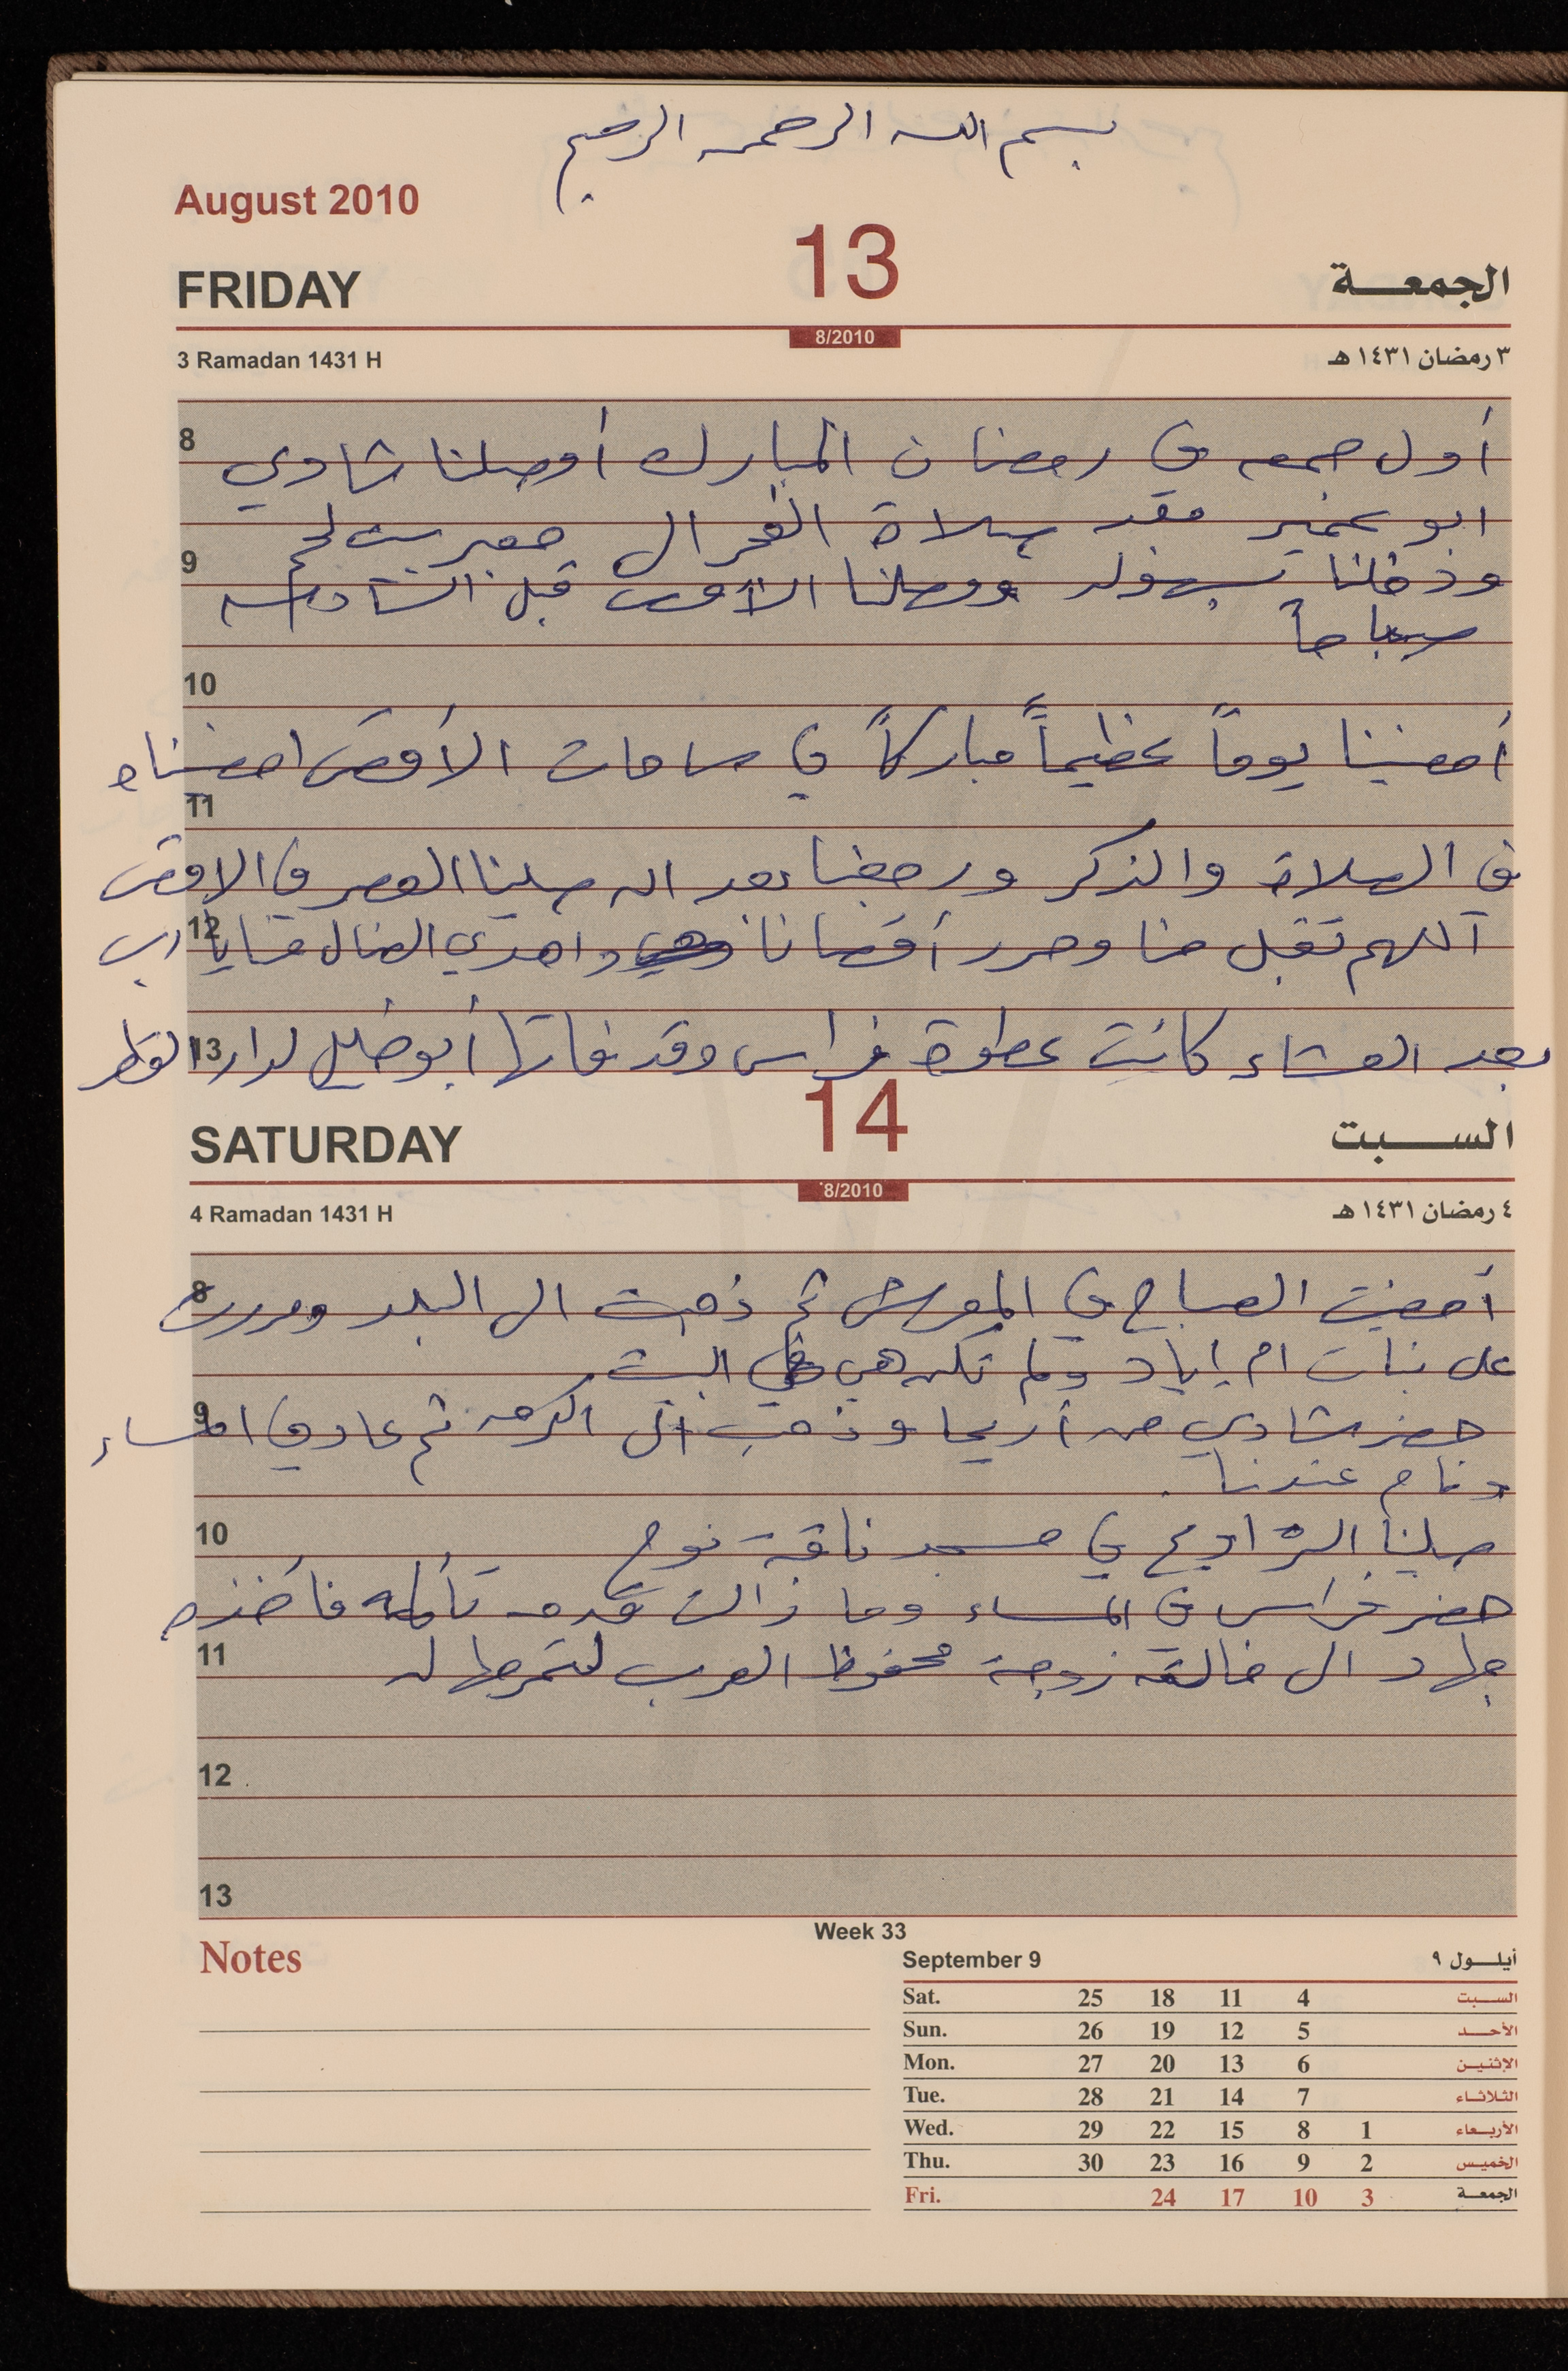 بسم الله الرحمن الرحيم
August 2010
FRIDAY 13 الجمعة
8/2010
3 Ramadan 1431 H ٣ رمضان ١٤٣١ هـ
8 أول جمعه في رمضان المبارك أوصلنا شادي
ابو عمير بعد صلاة الفجر الى معبر بيت لحم
9 ودخلنا بسهوله ووصلنا الأقصى قبل السادسه
صباحاً
10
أمضينا يوماً عظيماً مباركاً في ساحات الأقصى امضيناه
11
في الصلاة والذكر ورجعنا بعد ان صلينا العصر في الاقصى
12 اللهم تقبل منا وحرر أقصانا واهدي الضال منا يا رب
13 بعد العشاء كانت عطوة فراس وقد أبو خليل لدار
SATURDAY 14 السبت
8/2010
4 Ramadan 1431 H ٤ رمضان ١٤٣١ هـ
8 أمضيت الصباح في المعرش ثم ذهبت الى البلد ومررت
على بنات ام إياد ولم تكن هي في البيت
9 حضر شادي من أريحا وذهب الى الكرمه ثم عاد في المساء
ونام عندنا
10 صلينا التراويح في مسجد ناقة نوح
حضر فراس في المساء وما زالت قدمه تألمه فأخذه
11 جهاد الى خالته زوجة محفوظ العرب لتمرجها له
12
13
Week 33
Notes
September 9 أيلول ٩
Sat. 25 18 11 4 السبت
Sun. 26 19 12 5 الأحد
Mon. 27 20 13 6 الإثنين
Tue. 28 21 14 7 الثلاثاء
Wed. 29 22 15 8 1 الأربعاء
Thu. 30 23 16 9 2 الخميس
Fri. 24 17 10 3 الجمعة